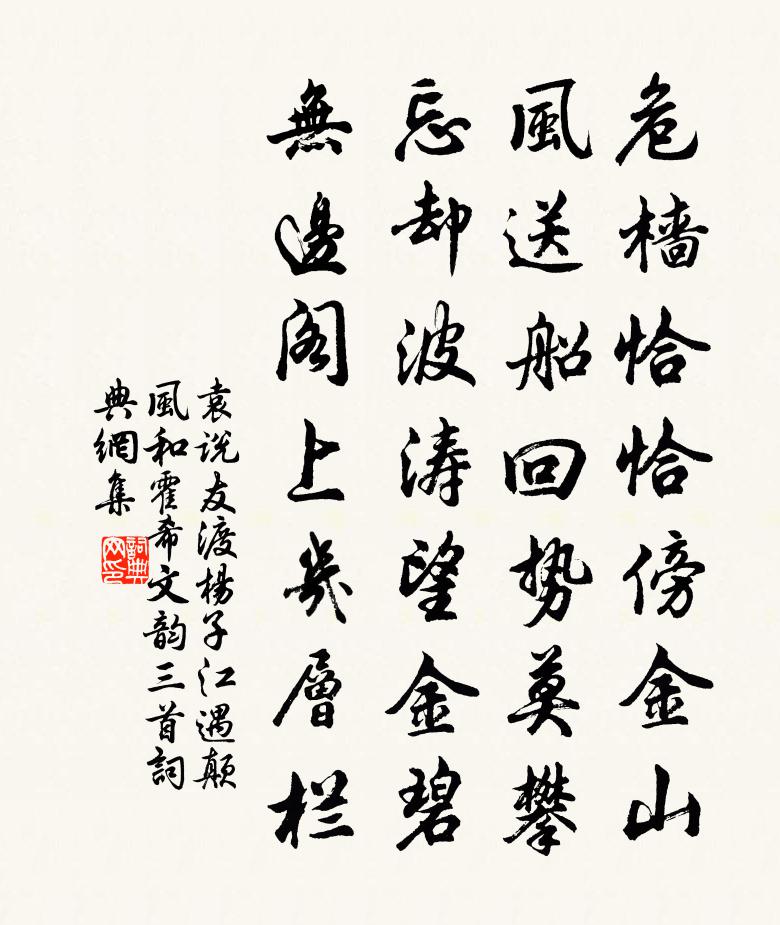 危檣恰恰傍金山
風送船回势莫攀
忘却波涛望金碧
無邊阁上幾層栏
袁说友渡楊子江遇颠
風和霍希文韵三首詞
典網集
詞典
网印